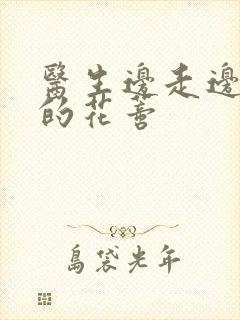 醫生邊走邊
的花蕾
島袋光年